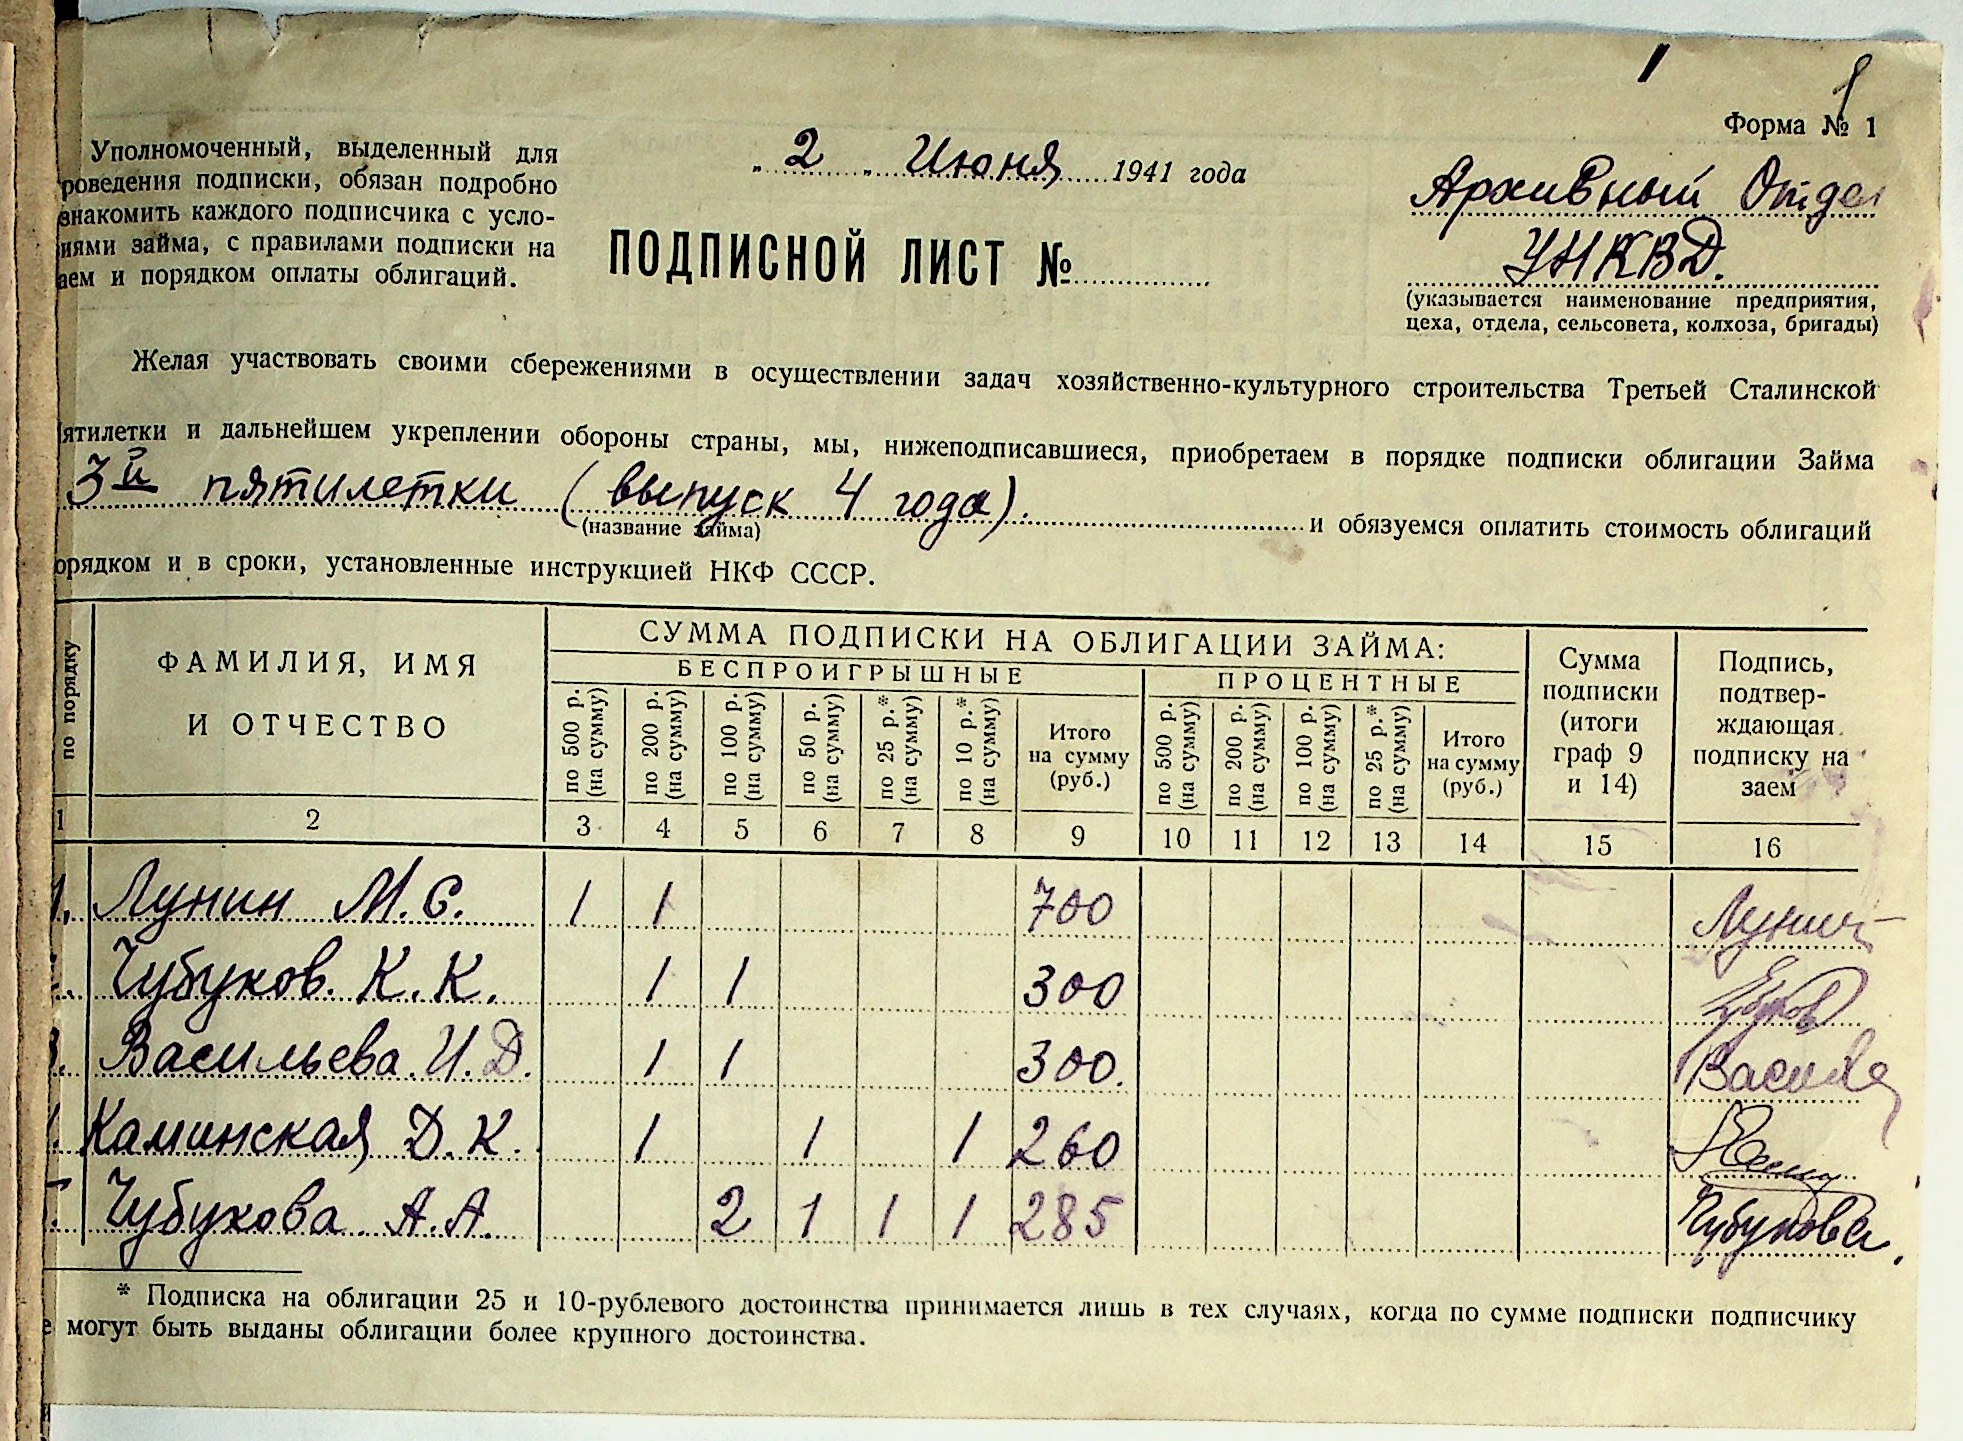 1
1
Форма № 1
Уполномоченный, выделенный для
роведения подписки, обязан подробно
знакомить каждого подписчика с усло-
иями займа, с правилами подписки на
аем и порядком оплаты облигаций.
„2„ Июня 1941 года
Архивный Отдел
УНКВД.
(указывается наименование предприятия,
цеха, отдела, сельсовета, колхоза, бригады)
ПОДПИСНОЙ ЛИСТ №
Желая участвовать своими сбережениями в осуществлении задач хозяйственно-культурного строительства Третьей Сталинской
ятилетки и дальнейшем укреплении обороны страны, мы, нижеподписавшиеся, приобретаем в порядке подписки облигации Займа
3й пятилетки (выпуск 4 года). и обязуемся оплатить стоимость облигаций
(название займа)
орядком и в сроки, установленные инструкцией НКФ СССР.
по порядку
ФАМИЛИЯ, ИМЯ
И ОТЧЕСТВО
СУММА ПОДПИСКИ НА ОБЛИГАЦИИ ЗАЙМА:
БЕСПРОИГРЫШНЫЕ
по 500 р. (на сумму)
по 200 р. (на сумму)
по 100 р. (на сумму)
по 50 р. (на сумму)
по 25 р.* (на сумму)
по 10 р.* (на сумму)
Итого
на сумму
(руб.)
ПРОЦЕНТНЫЕ
по 500 р. (на сумму)
по 200 р. (на сумму)
по 100 р. (на сумму)
по 25 р.* (на сумму)
Итого
на сумму
(руб.)
Сумма
подписки
(итоги
граф 9
и 14)
Подпись,
подтвер-
ждающая
подписку на
заем
1 2 3 4 5 6 7 8 9 10 11 12 13 14 15 16
1. Лунин М.С. 1 1 700 Лунин
Чубуков К.К. 1 1 300 Чубуков
3. Васильева И.Д. 1 1 300. Василева
Каминская Д.К. 1 1 1 260
Чубукова А.А. 2 1 1 1 285 Чубукова.
* Подписка на облигации 25 и 10-рублевого достоинства принимается лишь в тех случаях, когда по сумме подписки подписчику
е могут быть выданы облигации более крупного достоинства.